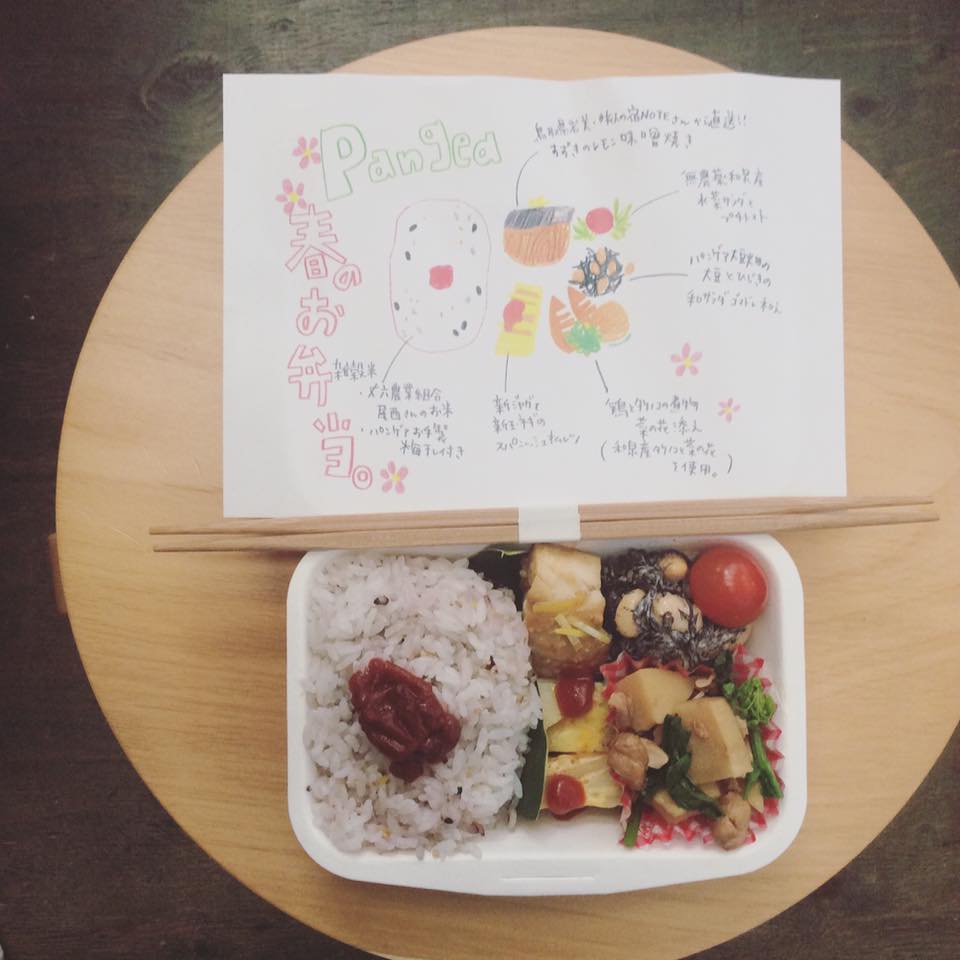 Pangea
春のお弁当。
鳥取県岩美・旅人の宿NOTEさんから直送!!
すずきのレモン味噌焼き
無農薬・和泉産
水菜サラダと
プチトマト
パンゲア大豆畑の
大豆とひじきの
和サラダ
雑穀米
農業組合
尾西さんのお米
・パンゲアお手製
梅干し付き
新ジャガと
新玉ネギの
スパニッシュオムレツ
鶏とタケノコの煮物
菜の花添え
(和泉産タケノコと菜の花
を使用。)